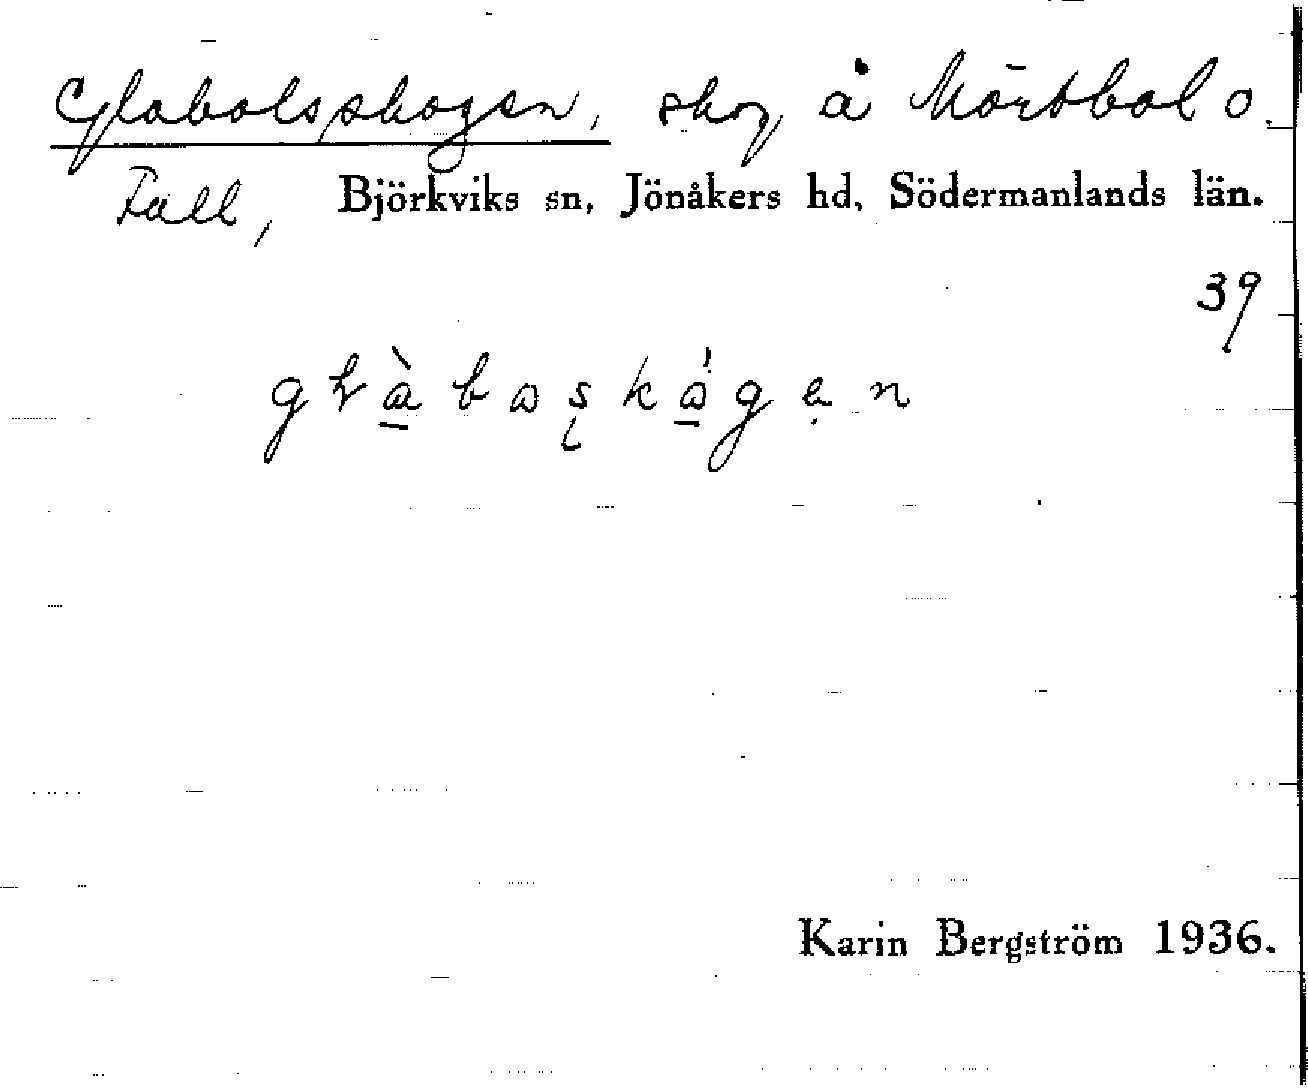 Glabolsskogen, skog å Mörtbol o.
Fall, Björkviks sn, Jönåkers hd, Södermanlands län.
39
Karin Bergström 1936.